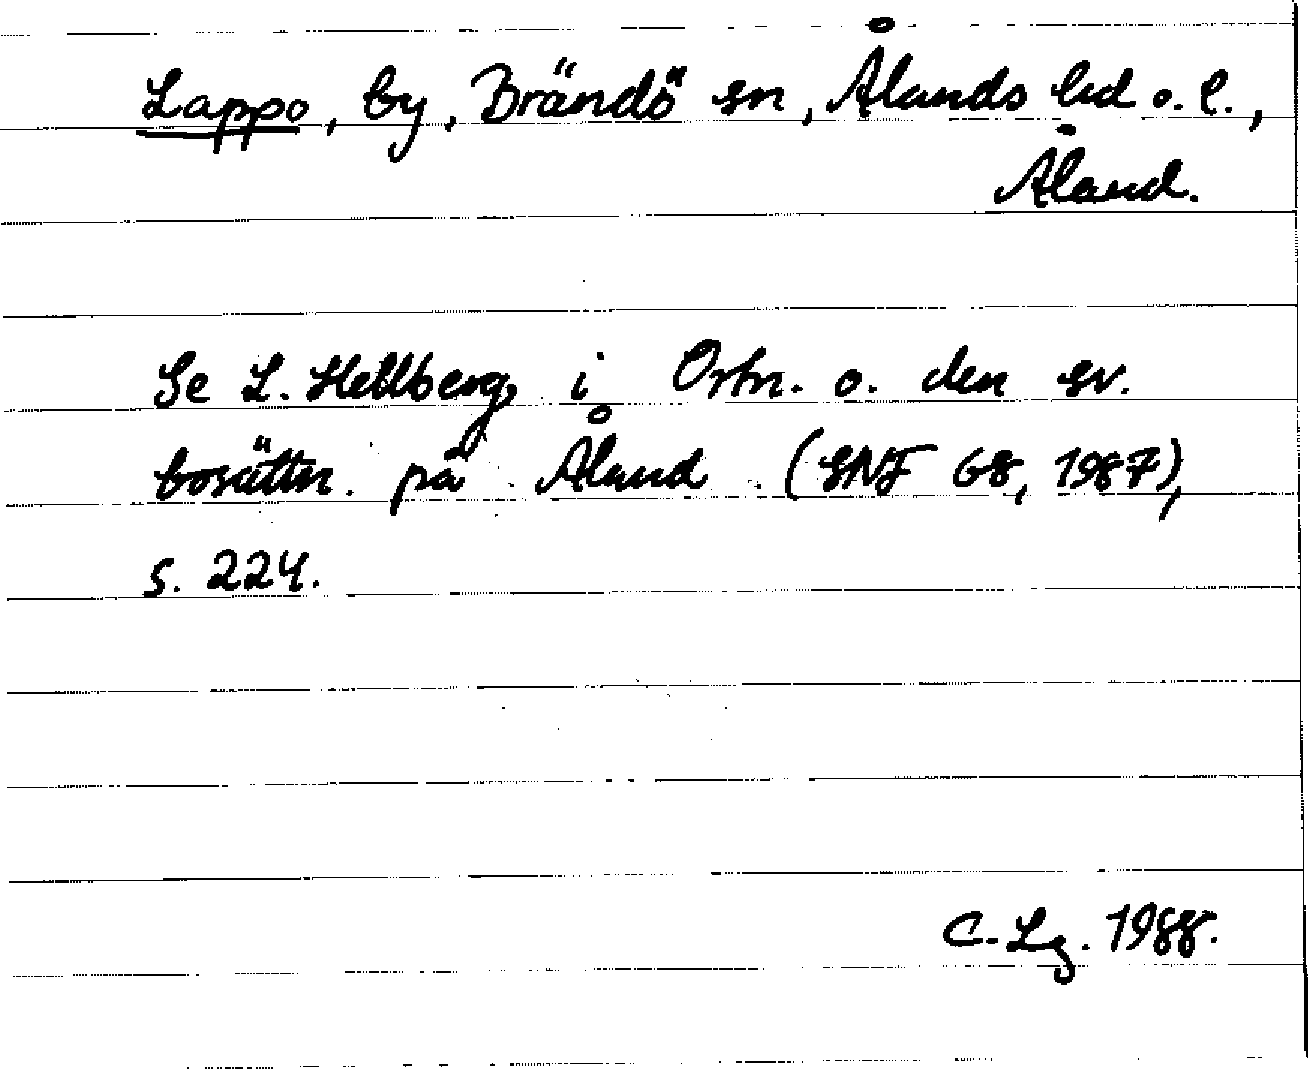 Lappo, by, Brändö sn, Ålands hd o. l.,
Åland.
Se L. Hellberg i Ortn. o. den sv.
bosättn. på Åland (SNF 68, 1987),
s. 224.
C. Lg. 1988.